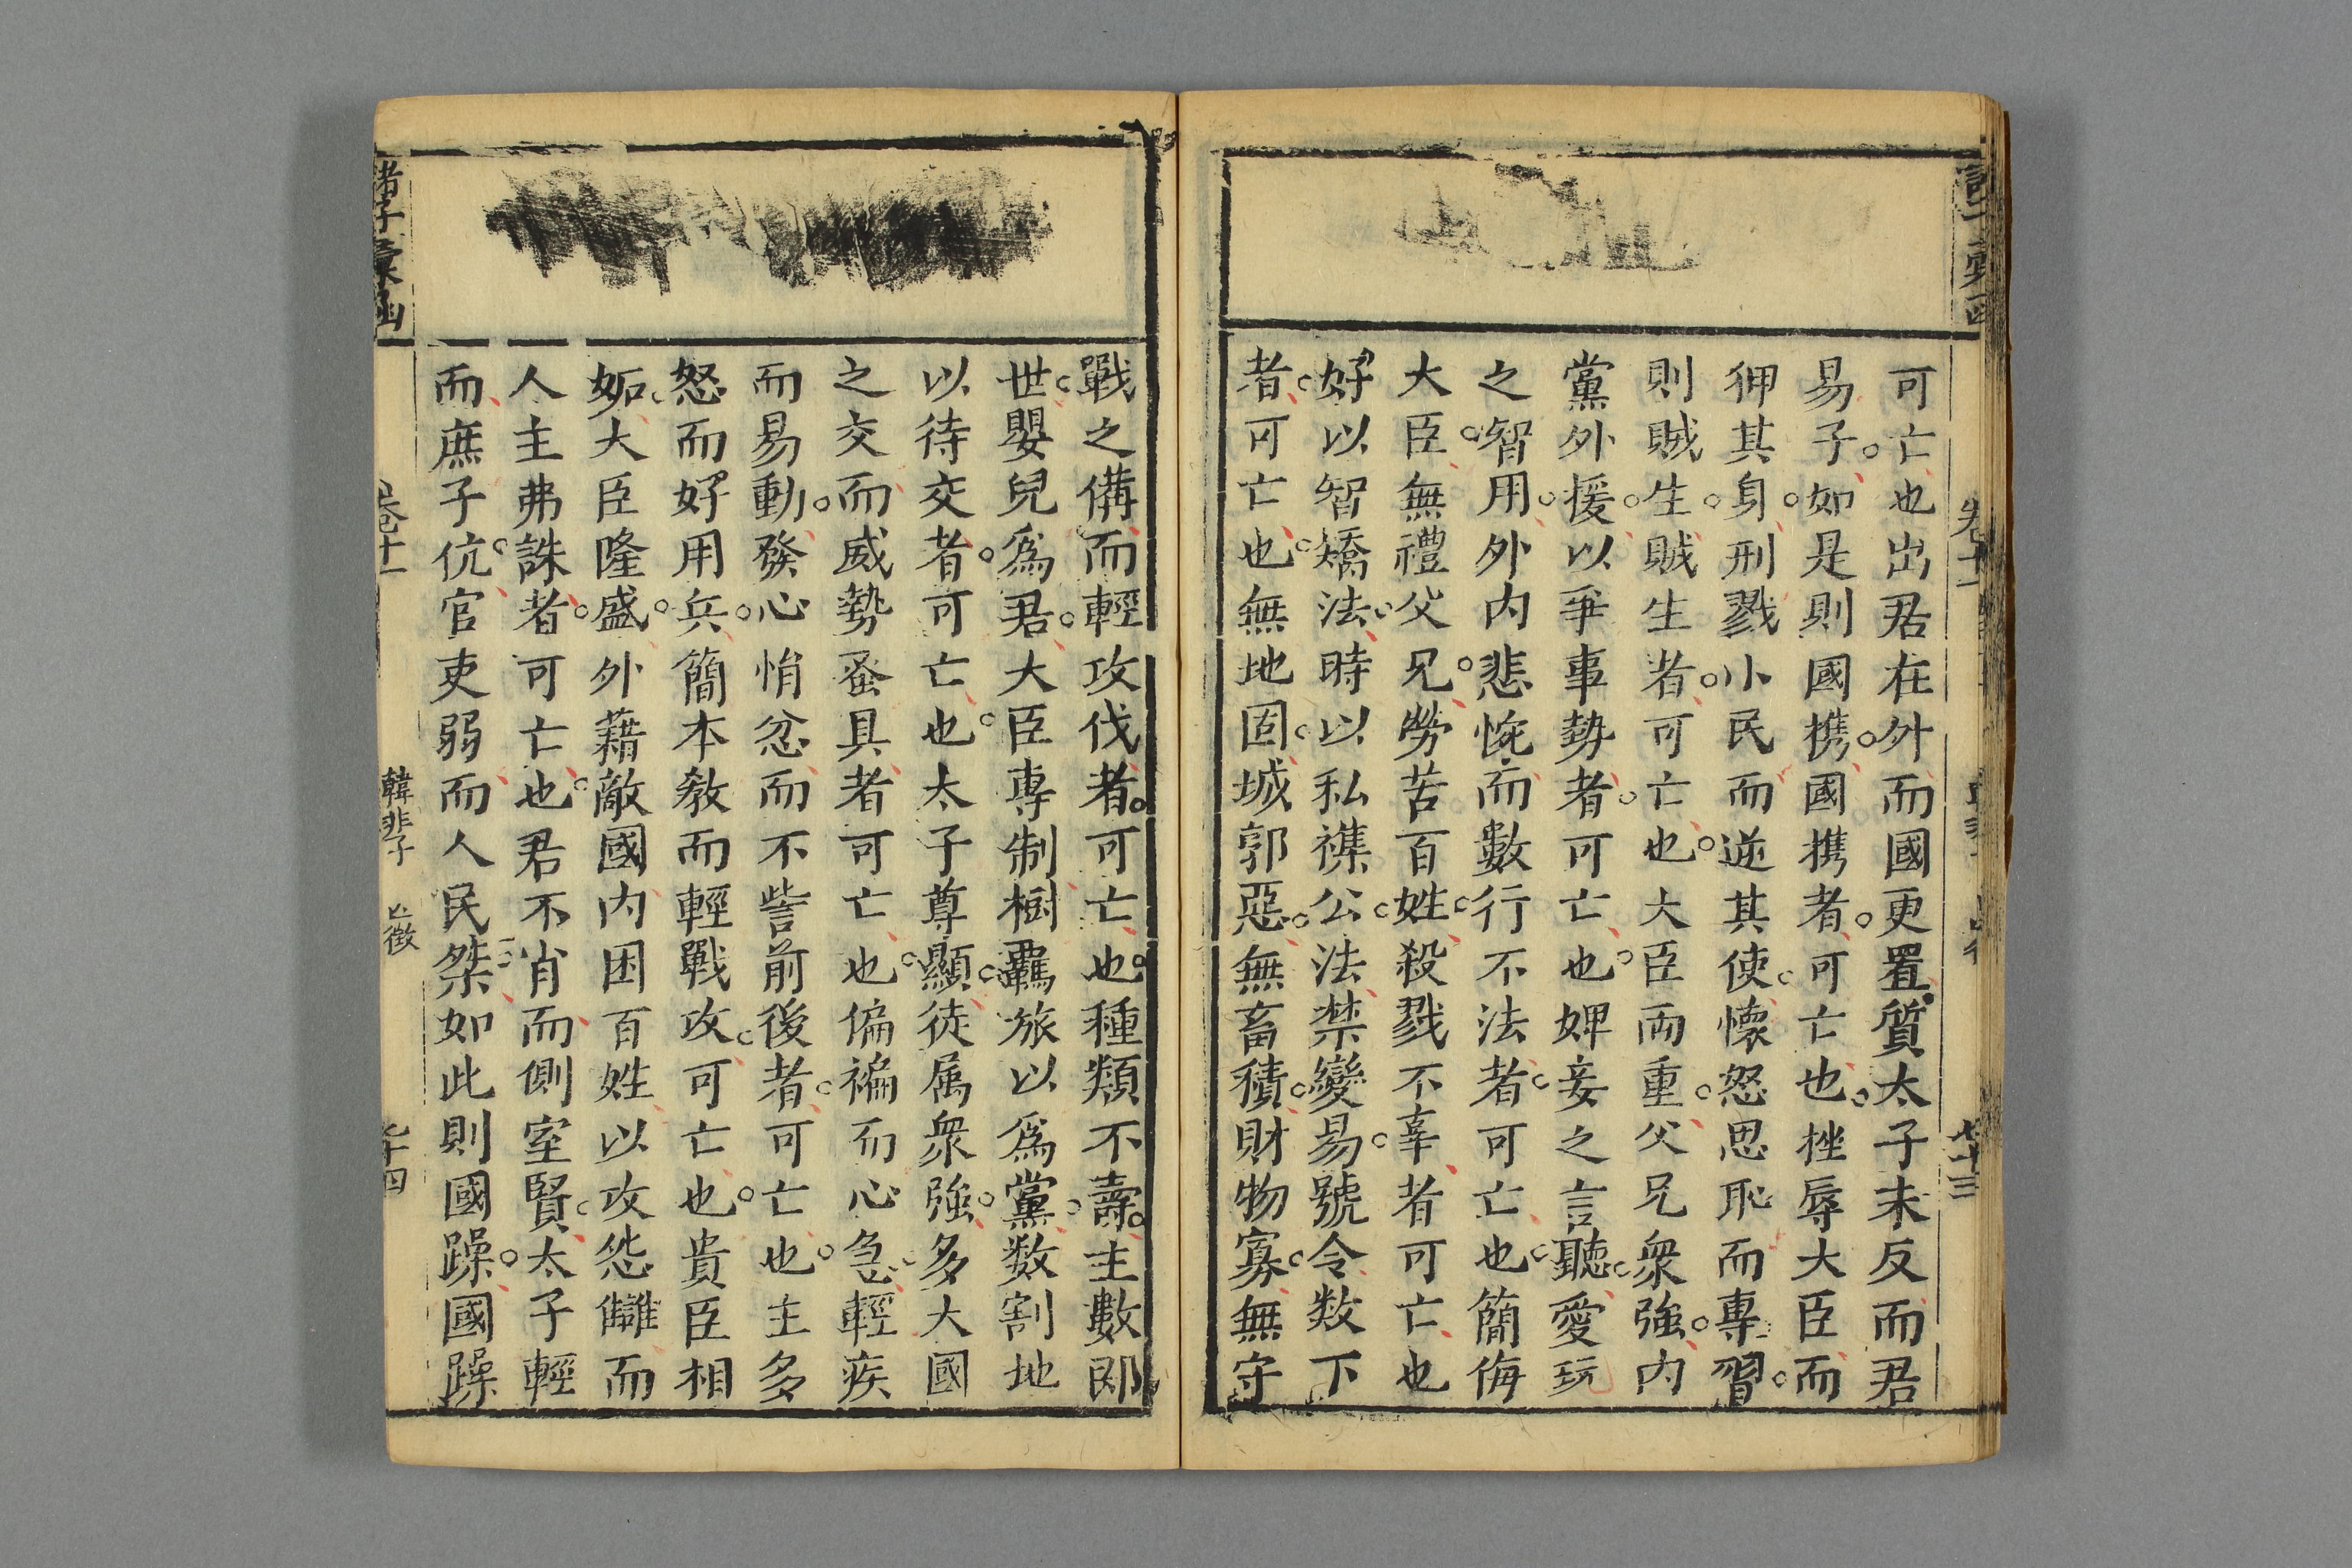 可亡也出君在外而國更置質太子未反而君
易子如是則國携國携者可亡也挫辱大臣而
狎其身刑戮小民而逆其使懷怒思恥而專習
則賊生賊生者可亡也大臣兩重父兄衆強内
黨外援以爭事勢者可亡也婢妾之言聽愛玩
之智用外内悲惋而數行不法者可亡也簡侮
大臣無禮父兄勞苦百姓殺戮不辜者可亡也
好以智矯法時以私襍公法禁變易號令数下
者可亡也無地固城郭惡無畜積財物寡無守
戰之備而輕攻伐者可亡也種類不壽主數即
世嬰兒爲君大臣專制樹羈旅以爲黨数割地
以待交者可亡也太子尊顯徒属衆強多大國
之交而威勢蚤具者可亡也偏褊而心急輕疾
而易動發心悁忿而不訾前後者可亡也主多
怒而好用兵簡本教而輕戰攻可亡也貴臣相
妬大臣隆盛外藉敵國内困百姓以攻怨讎而
人主弗誅者可亡也君不肖而側室賢太子輕
而庶子伉官吏弱而人民桀如此則國躁國躁
諸子彙函
卷十一
韓非子
亡徵
七十四